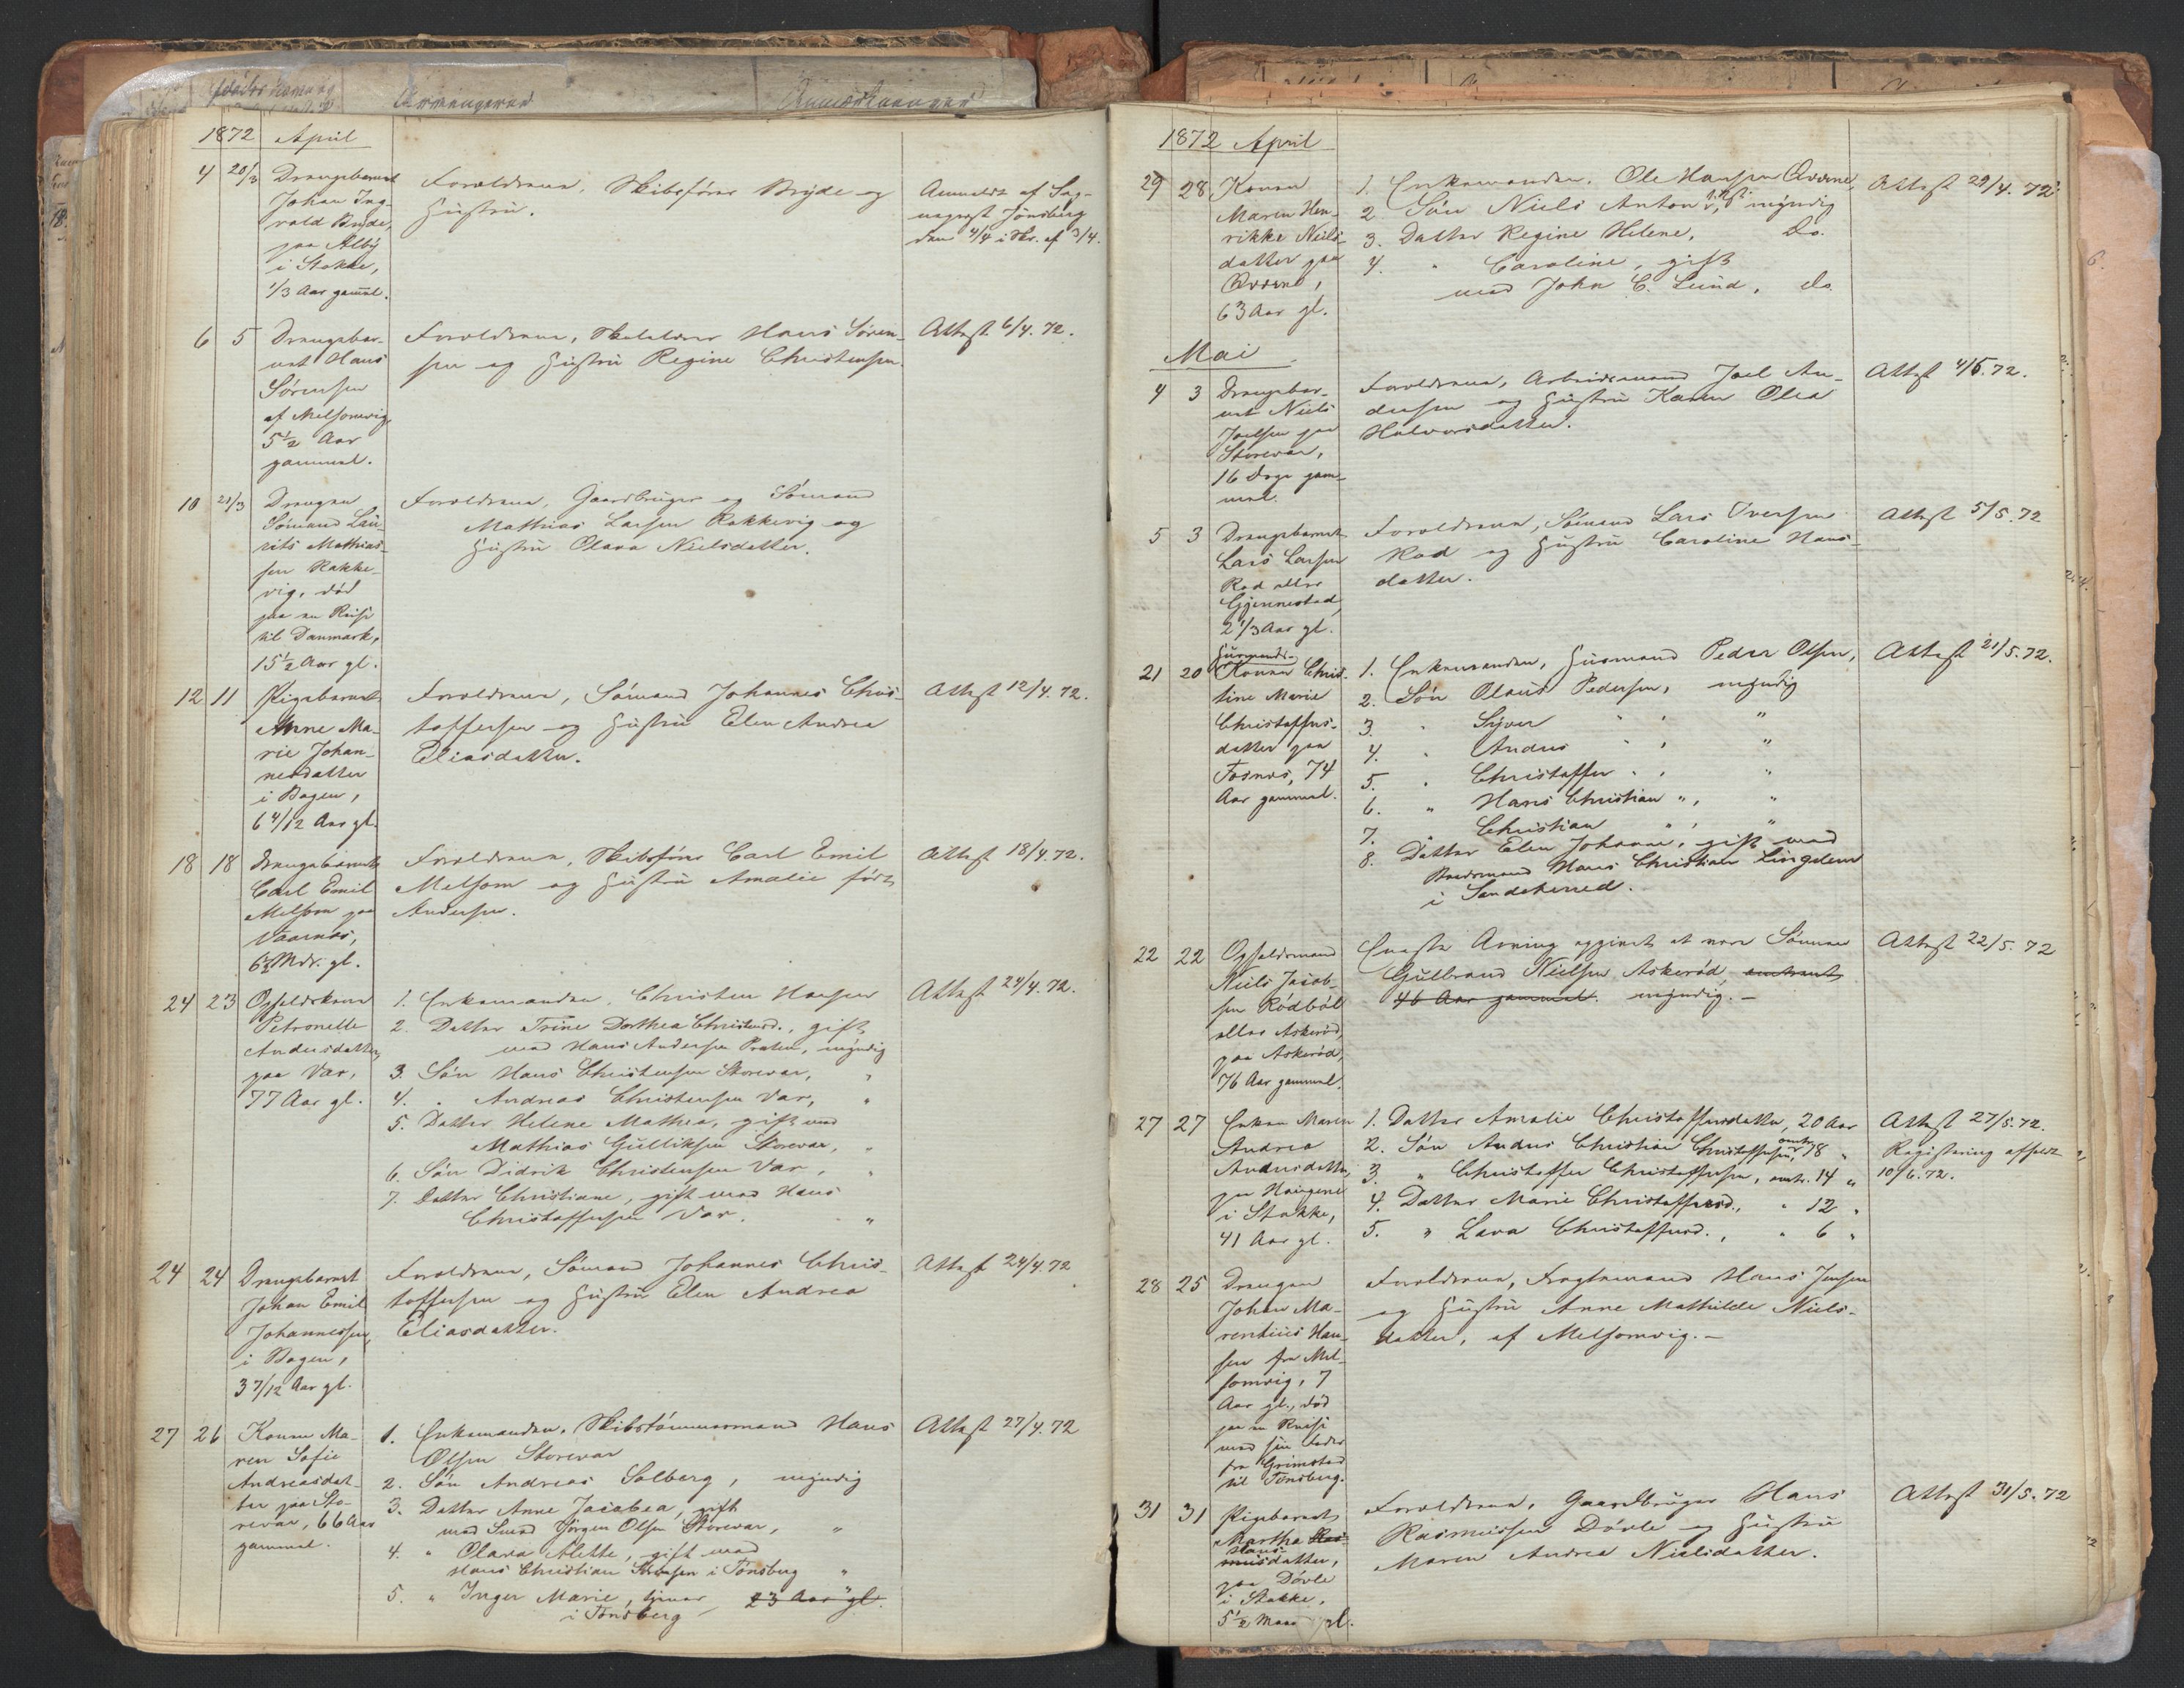 1872 April
4 20/3 Drengebarnet
Johan Ing-
vald Bryde,
paa Alby
i Stokke,
1/3 Aar gammel.
Forældrene, Skibsfører Bryde og
Hustru.
Anmeldt af Sog-
nepræst Tönsberg
den 4/4 i Skr. af 3/4.
6 5 Drengebar-
net Hans
Sörensen
af Melsomvig,
5½ Aar
gammel.
Forældrene, Skolelærer Hans Sören-
sen og Hustru Regine Christensen.
Attest 6/4. 72.
10 21/3 Drengen
Sömand Lau-
rits Mathias-
sen Rakke-
vig, död
paa en Reise
til Danmark,
15½ Aar gl.
Forældrene, Gaardbruger og Sömand
Mathias Larsen Rakkevig og
Hustru Olava Nielsdatter.
12 11 Pigebarnet
Anne Ma-
rie Johan-
nesdatter
i Bogen,
6 4/12 Aar gl.
Forældrene, Sömand Johannes Chris-
toffersen og Hustru Elen Andrea
Eliasdatter.
Attest 12/4. 72.
18 18 Drengebarnet
Carl Emil
Melsom paa
Vaarnæs,
6½ Mdr. gl.
Forældrene, Skibsförer Carl Emil
Melsom og Hustru Amalie födt
Andersen.
Attest 18/4. 72.
24 23 Opholdskone
Petronelle
Andersdatter,
paa Var,
77 Aar gl.
1. Enkemanden, Christen Hansen
2. Datter Trine Dorthea Christensd., gift
med Hans Andersen Pruten, myndig
3. Sön Hans Christensen Storevar, "
4. " Andreas Christensen Var, "
5. Datter Helene Mathea, gift med
Mathias Gulliksen Storevar, "
6. Sön Didrik Christensen Var, "
7. Datter Christiane, gift med Hans
Christoffersen Var. "
Attest 24/4. 72.
24 24 Drengebarnet
Johan Emil
Johannessen,
i Bogen,
3 7/12 Aar gl.
Forældrene, Sömand Johannes Chris-
toffersen og Hustru Elen Andrea
Eliasdatter.
Attest 24/4. 72
27 26 Konen Ma-
ren Sofie
Andreasdat-
ter paa Sto-
revar, 66 Aar
gammel.
1. Enkemanden, Skibstömmermand Hans
Olsen Storevar
2. Sön Andreas Solberg, myndig
3. Datter Anne Jacobea, gift
med Smed Jörgen Olsen Storevar, "
4. " Olava Alette, gift med
Hans Christian in Tönsberg "
5. " Inger Marie, tjener 23 Aar gl.
i Tönsberg
Attest 27/4. 72
1872 April
29 28 Konen
Maren Hen-
rikke Niels-
datter paa
Qværne,
63 Aar gl.
1. Enkemanden, Ole Hansen Qværne,
2 Sön Niels Anton, myndig
3. Datter Regine Helene, do.
4. " Caroline, gift
med John C. Lund, do.
Attest 29/4. 72.
Mai
4 3 Drengebar-
net Niels
Joelsen paa
Storevar,
16 Dage gam-
mel.
Forældrene, Arbeidsmand Joel An-
dersen og Hustru Karen Olea
Halvorsdatter.
Attest 4/5. 72.
5 3 Drengebarnet
Lars Larsen
Rød eller
Gjennestad,
2 1/3 Aar gl.
Forældrene, Sömand Lars Iversen
Rød og Hustru Caroline Hans-
datter.
Attest 5/5. 72
21 20 Husmands-
Konen Chris-
tine Marie
Christoffers-
datter paa
Fosnæs, 74
Aar gammel.
1. Enkemanden, Husmand Peder Olsen,
2. Sön Olaus Pedersen, myndig
3. " Syver " , "
4. " Anders " , "
5. " Christoffer " , "
6. " Hans Christian " , "
7. " Christian " , "
8. Datter Elen Johanne, gift med
Hans Christian Lingelem
i Sandeherred.
Attest 21/5. 72.
22 22 Opholdsmand
Niels Jacob-
sen Rödböl
eller Askeröd,
paa Askeröd,
76 Aar gammel.
Eneste Arving opgivet at være Sönnen
Gulbrand Nielsen Askeröd, omtrent
46 Aar gammel. myndig. -
Attest 22/5. 72
27 27 Enken Maren
Andrea
Andersdatter,
paa Haugene
i Stokke,
41 Aar gl.
1. Datter Amalie Christoffersdatter, 20 Aar
2. Sön Anders Christian Christoffersen, omtr. 18 "
3. " Christoffer Christoffersen, omtr. 14 "
4. Datter Marie Christoffersd., " 12 "
5. " Lava Christoffersd., " 6 "
Attest 27/5. 72.
Registrering afholdt
10/6. 72.
28 25 Drengen
Johan Ma-
rentius Han-
sen fra Mel-
somvig, 7
Aar gl., död
paa en Reise
med sin Fader
fra Grimstad
til Tönsberg.
Forældrene, Fragtemand Hans Jensen
og Hustru Anne Mathilde Niels-
datter, af Melsomvig. -
31 31 Pigebarnet
Martha Ras-
Hans-
musdatter,
paa Dövle
i Stokke,
5½ Maan gl.
Forældrene, Gaardbruger Hans
Rasmussen Dövle og Hustru
Maren Andrea Nielsdatter.
Attest 31/5. 72